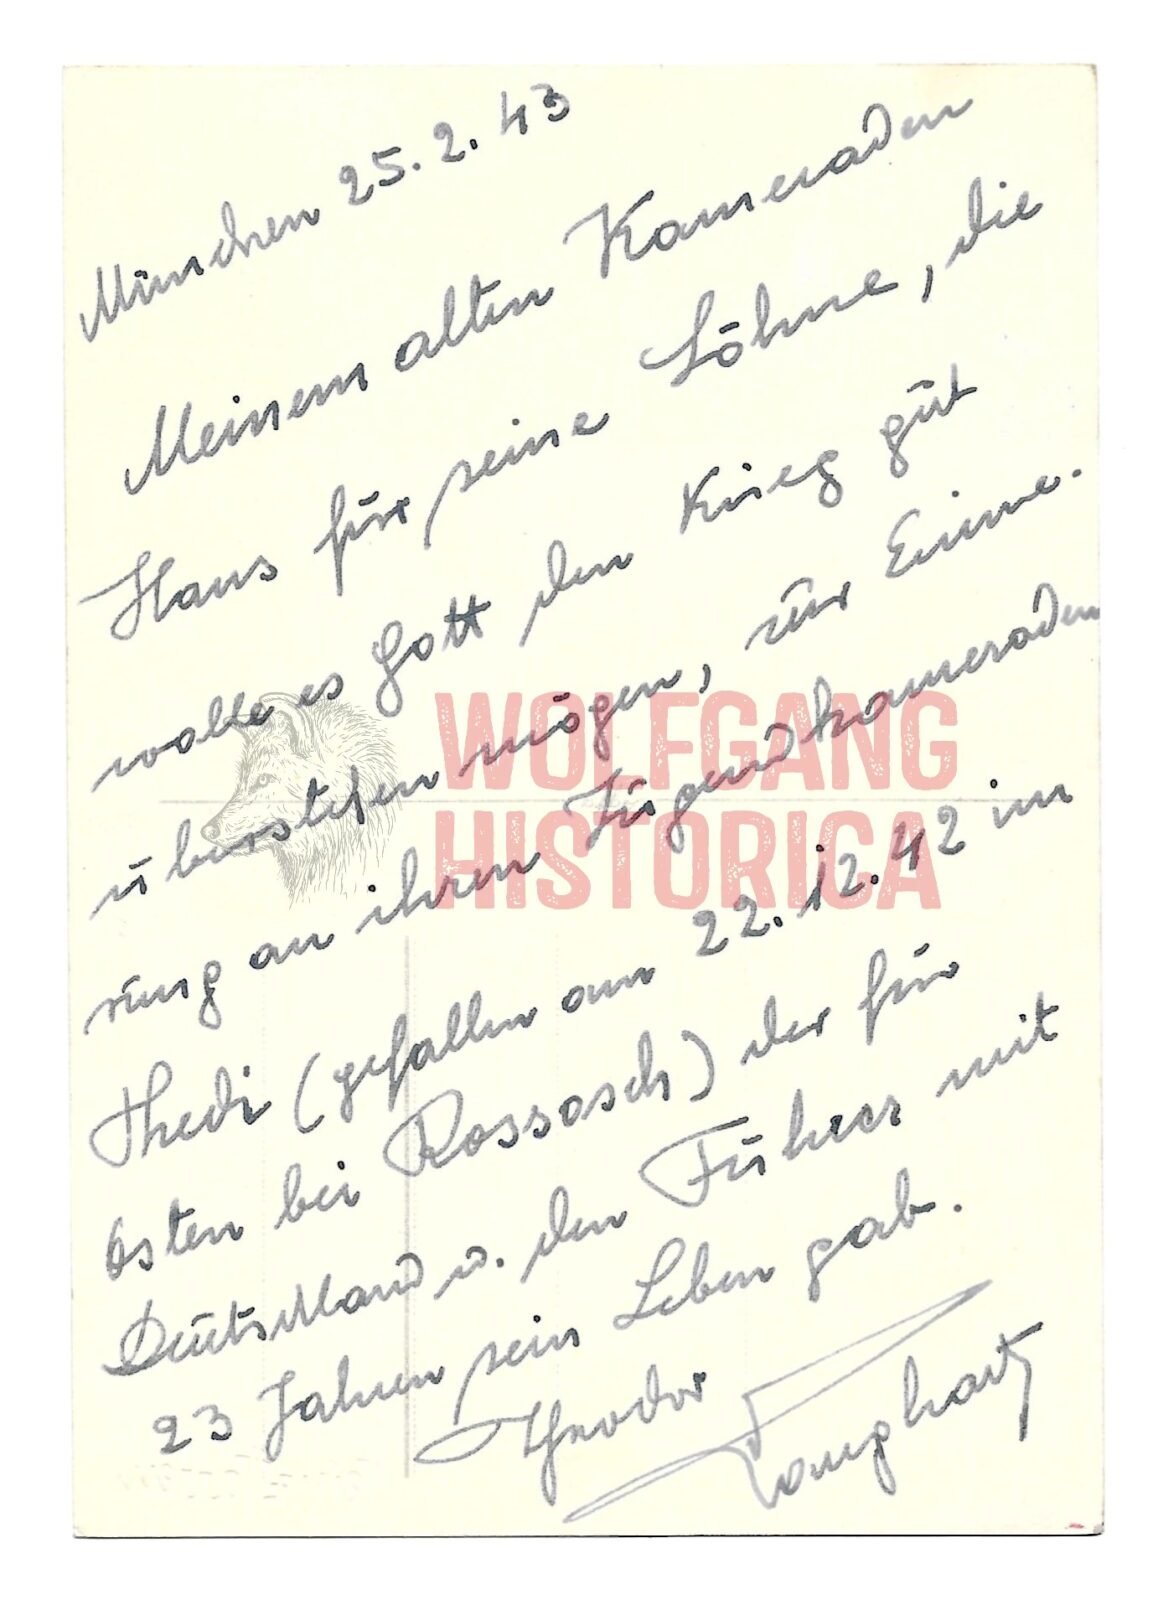 München 25.2.43
Meinem alten Kameraden
Hans für seine Söhne, die
wolle es Gott den Krieg gut
überstehen mögen, zur Erinne-
rung an ihren Jugendkameraden
Thedi (gefallen am 22.12.42 im
Osten bei Rossosch) der für
Deutschland u. den Führer mit
23 Jahren sein Leben gab.
Theodor
WOLFGANG
HISTORICA